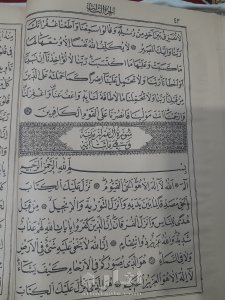 ٤٢
لَا نُفَرِّقُ بَيْنَ اَحَدٍ مِنْ رُسُلِهِ وَقَالُوا سَمِعْنَا وَاَطَعْنَا غُفْرَانَكَ
رَبَّنَا وَاِلَيْكَ الْمَصِيرُ لَا يُكَلِّفُ اللّٰهُ نَفْسًا اِلَّا وُسْعَهَا لَهَا
مَا كَسَبَتْ وَعَلَيْهَا مَا اكْتَسَبَتْ رَبَّنَا لَا تُؤَاخِذْنَا اِنْ نَسِينَا
اَوْ اَخْطَأْنَا رَبَّنَا وَلَا تَحْمِلْ عَلَيْنَا اِصْرًا كَمَا حَمَلْتَهُ عَلَى الَّذِينَ
مِنْ قَبْلِنَا رَبَّنَا وَلَا تُحَمِّلْنَا مَا لَا طَاقَةَ لَنَا بِهِ وَاعْفُ عَنَّا وَاغْفِرْ
لَنَا وَارْحَمْنَا اَنْتَ مَوْلٰينَا فَانْصُرْنَا عَلَى الْقَوْمِ الْكَافِرِينَ
سُورَةُ آلِ عِمْرَانَ مَدَنِيَّةٌ
وَهِيَ مِائَتَا آيَةٍ
بِسْمِ اللّٰهِ الرَّحْمٰنِ الرَّحِيمِ
الٓمٓ اَللّٰهُ لَا اِلٰهَ اِلَّا هُوَ الْحَىُّ الْقَيُّومُ نَزَّلَ عَلَيْكَ الْكِتَابَ
بِالْحَقِّ مُصَدِّقًا لِمَا بَيْنَ يَدَيْهِ وَاَنْزَلَ التَّوْرٰيةَ وَالْاِنْجِيلَ مِنْ قَبْلُ
هُدًى لِلنَّاسِ وَاَنْزَلَ الْفُرْقَانَ اِنَّ الَّذِينَ كَفَرُوا بِاٰيَاتِ اللّٰهِ لَهُمْ عَذَابٌ
شَدِيدٌ وَاللّٰهُ عَزِيزٌ ذُو انْتِقَامٍ اِنَّ اللّٰهَ لَا يَخْفٰى عَلَيْهِ شَىْءٌ فِى الْاَرْضِ
وَلَا فِى السَّمَاءِ هُوَ الَّذِى يُصَوِّرُكُمْ فِى الْاَرْحَامِ كَيْفَ يَشَاءُ
لَا اِلٰهَ اِلَّا هُوَ الْعَزِيزُ الْحَكِيمُ هُوَ الَّذِى اَنْزَلَ عَلَيْكَ الْكِتَابَ